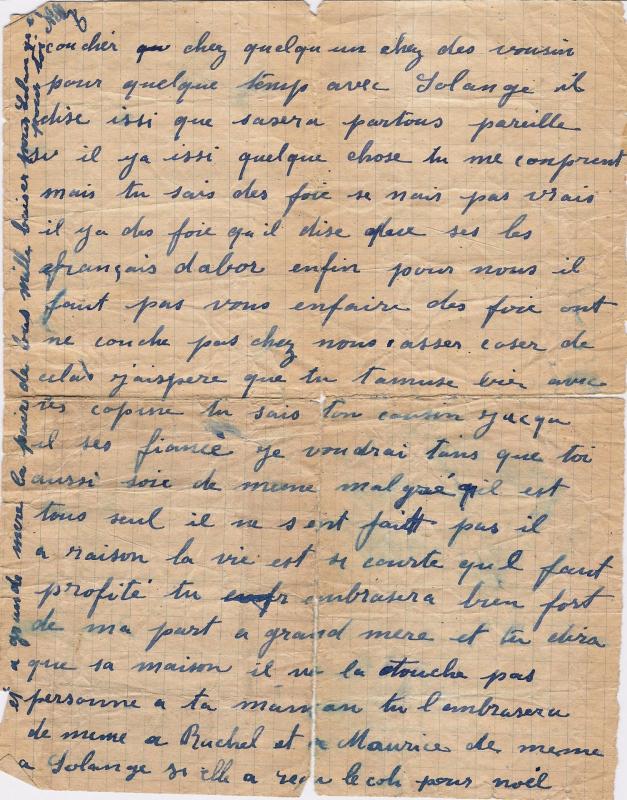 coucher chez quelqu un chez des vousin
pour quelque temp avec Solange il
dise issi que sasera partous pareille
si il ya issi quelque chose tu me conprent
mais tu sais des foie se nais pas vrais
il ya des foie qu'il dise que ses les
français dabor enfin pour nous il
faut pas vous enfaire des foie ont
ne couche pas chez nous asser coser de
celas j'aispere que tu t'amuse bien avec
tes copine tu sais ton cousin Jacqu
il ses fiancé je voudrai tans que toi
aussi soie de meme malgré qil est
tous seul il ne s'ent fait pas il
a raison la vie est si courte quil faut
profité tu embrasera bien fort
de ma part a grand mere et tu dira
que sa maison il ne la touche pas
personne a ta maman tu l'embrasera
de meme a Rachel et a Maurice de meme
a Solange si elle a reçu le coli pour noël
et a grande mere la paire de bas mille baiser pour Solange et
pour toi